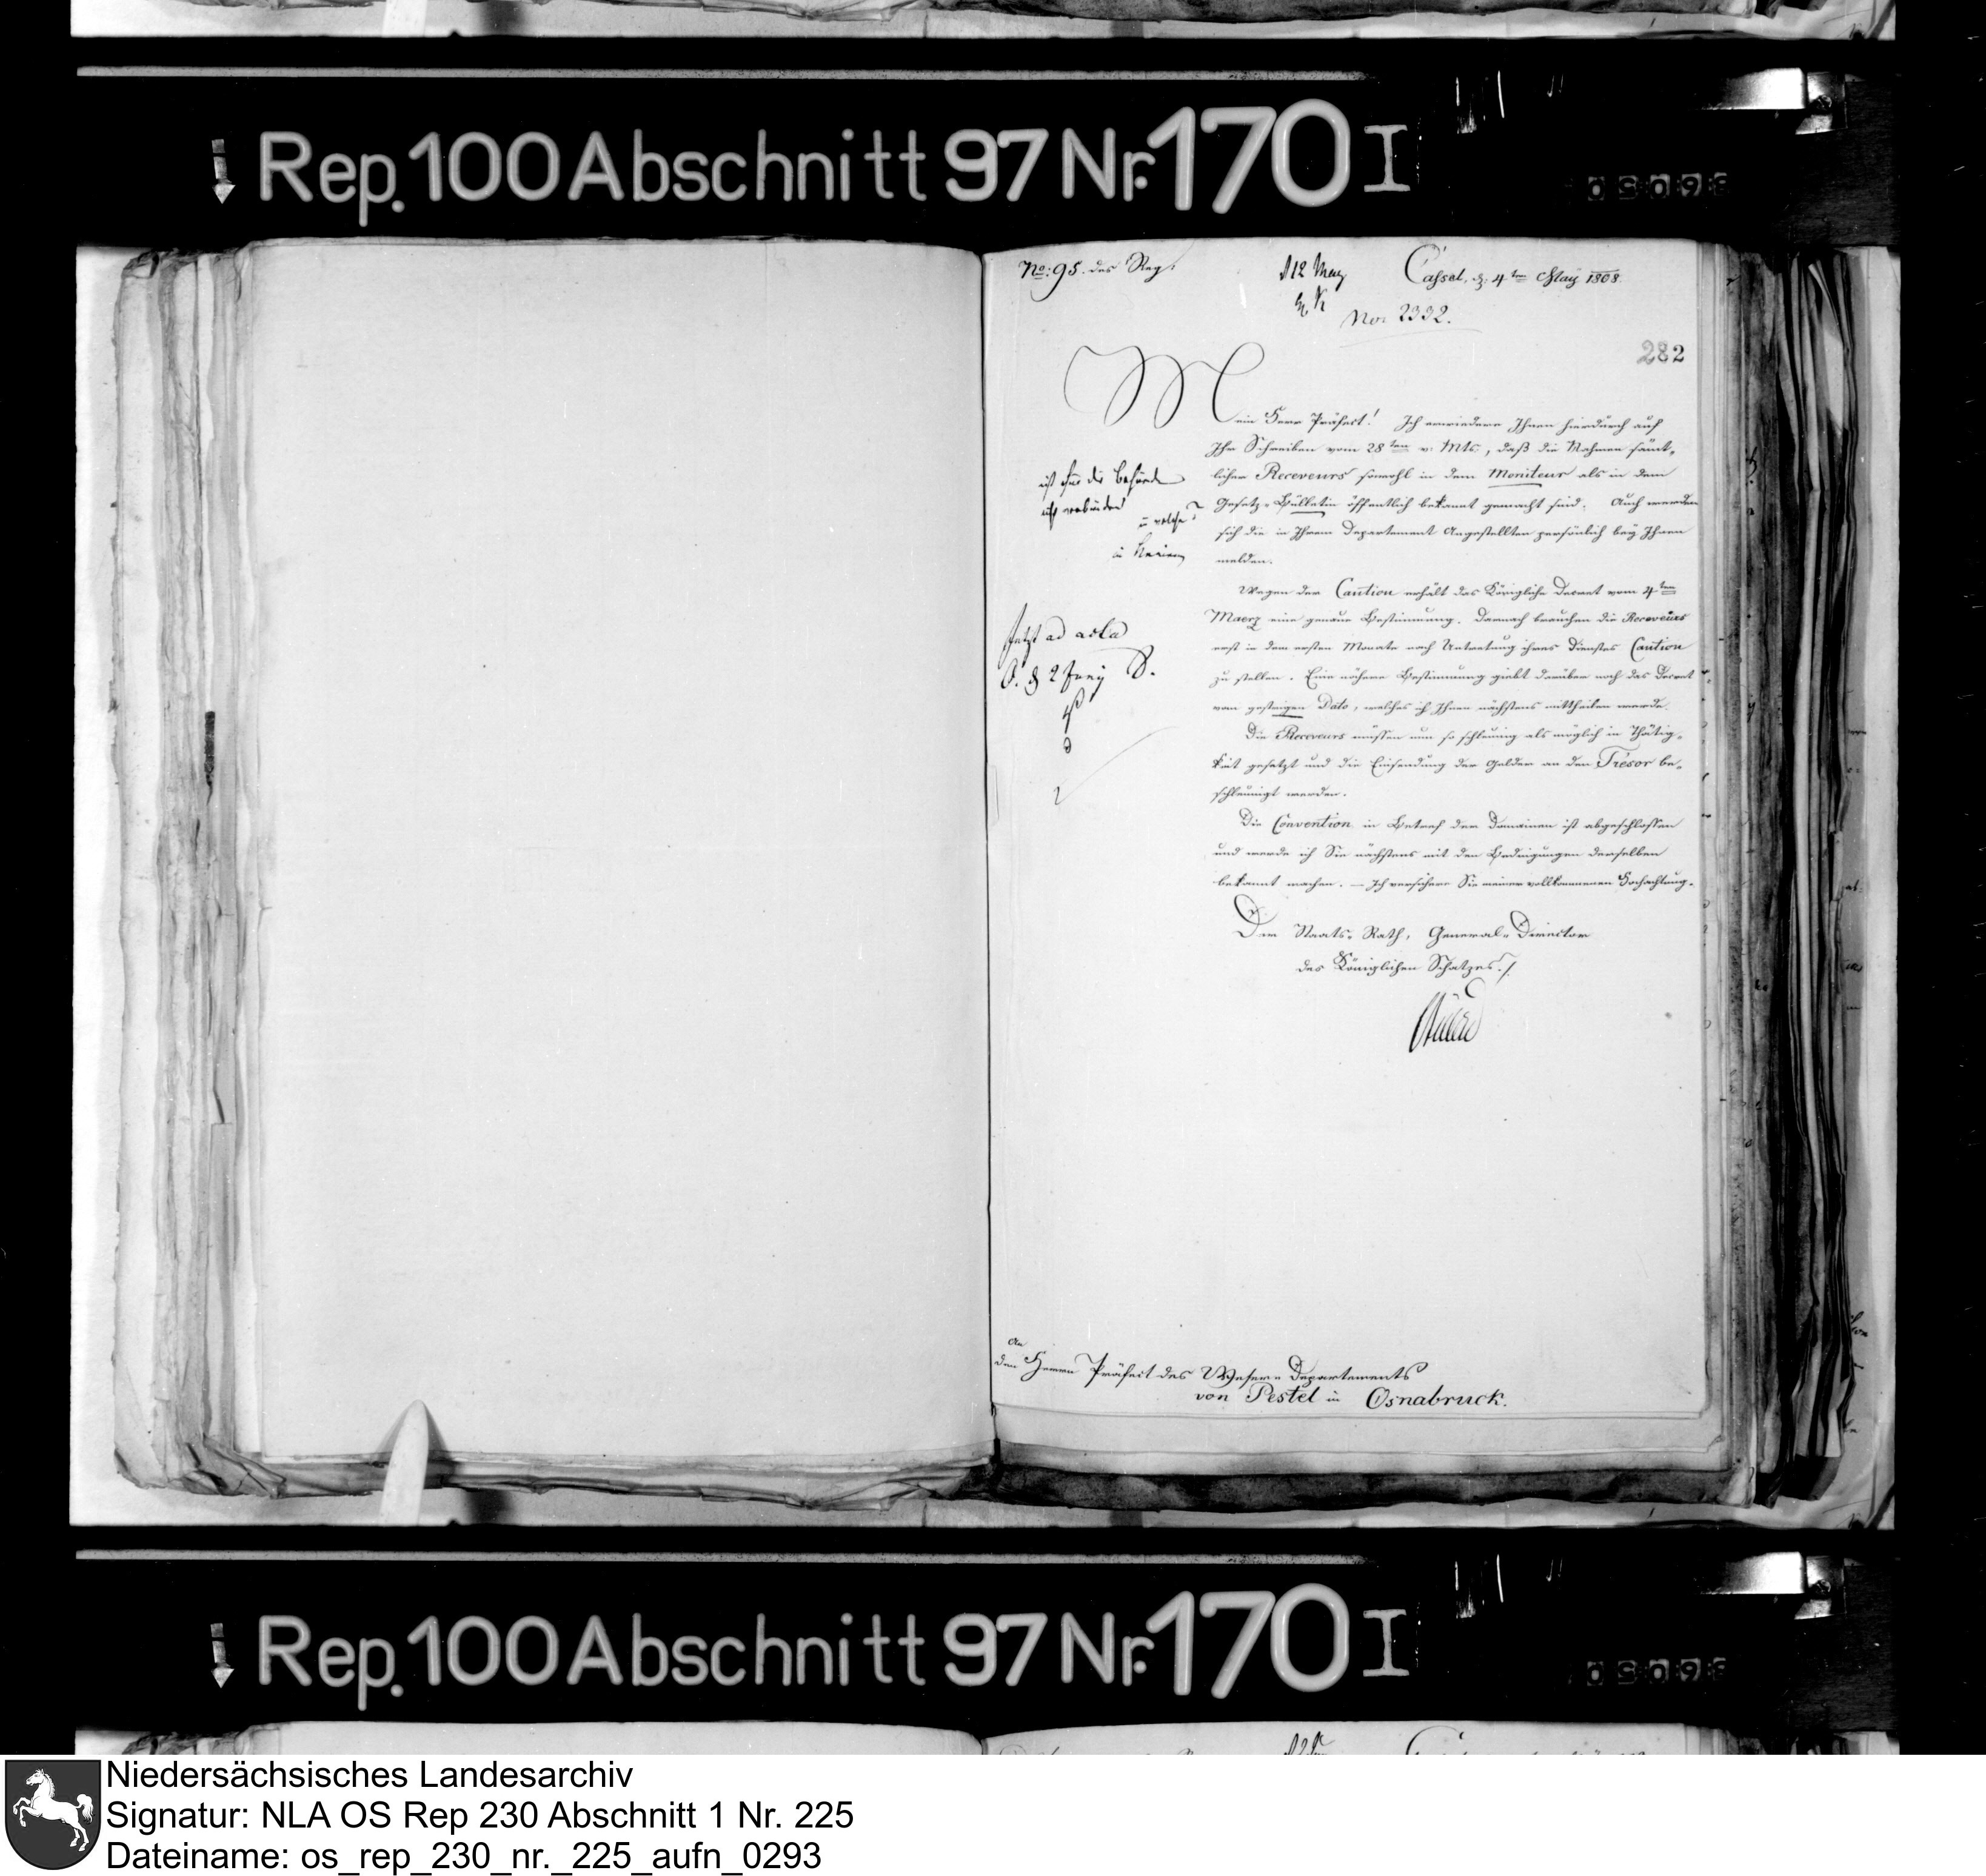 Rep. 100 Abschnitt 97 Nr. 170 I
No: 95. des Reg:
12 May
Cassel, d. 4ten May 1808.
Nor 2332.
282
Mein Herr Präfect! Ich erwiedere Ihnen hierdurch auf
Ihr Schreiben vom 28ten v. Mts., daß die Nahmen sämt-
licher Receveurs sowohl in dem Moniteur als in dem
Gesetz-Bülletin öffentlich bekannt gemacht sind. Auch werden
sich die in Ihrem Departement Angestellten persönlich bey Ihnen
melden.
Wegen der Caution erhält das Königliche Decret vom 4ten
Maerz eine genaue Bestimmung. Darnach brauchen die Receveurs
erst in dem ersten Monate nach Antretung ihres Dienstes Caution
zu stellen. Eine nähere Bestimmung giebt darüber noch das Decret
vom gestrigen Dato, welches ich Ihnen nächstens mittheilen werde.
Die Receveurs müssen nun so schleunig als möglich in Thätig-
keit gesetzt und die Einsendung der Gelder an den Trésor be-
schleunigt werden.
Die Convention in Betref der Domainen ist abgeschlossen
und werde ich Sie nächstens mit den Bedingungen derselben
bekannt machen. — Ich versichere Sie meiner vollkommenen Hochachtung.
Der Staats-Rath, General-Director
des Königlichen Schatzes.
ist für die Behörde
nicht verbindend
u welche?
jetzt ad acta
O. d 2 Juny 8.
An
den Herrn Präfect des Weser-Departements
von Pestel in Osnabruck.
Rep. 100 Abschnitt 97 Nr. 170 I
Niedersächsisches Landesarchiv
Signatur: NLA OS Rep 230 Abschnitt 1 Nr. 225
Dateiname: os_rep_230_nr._225_aufn_0293